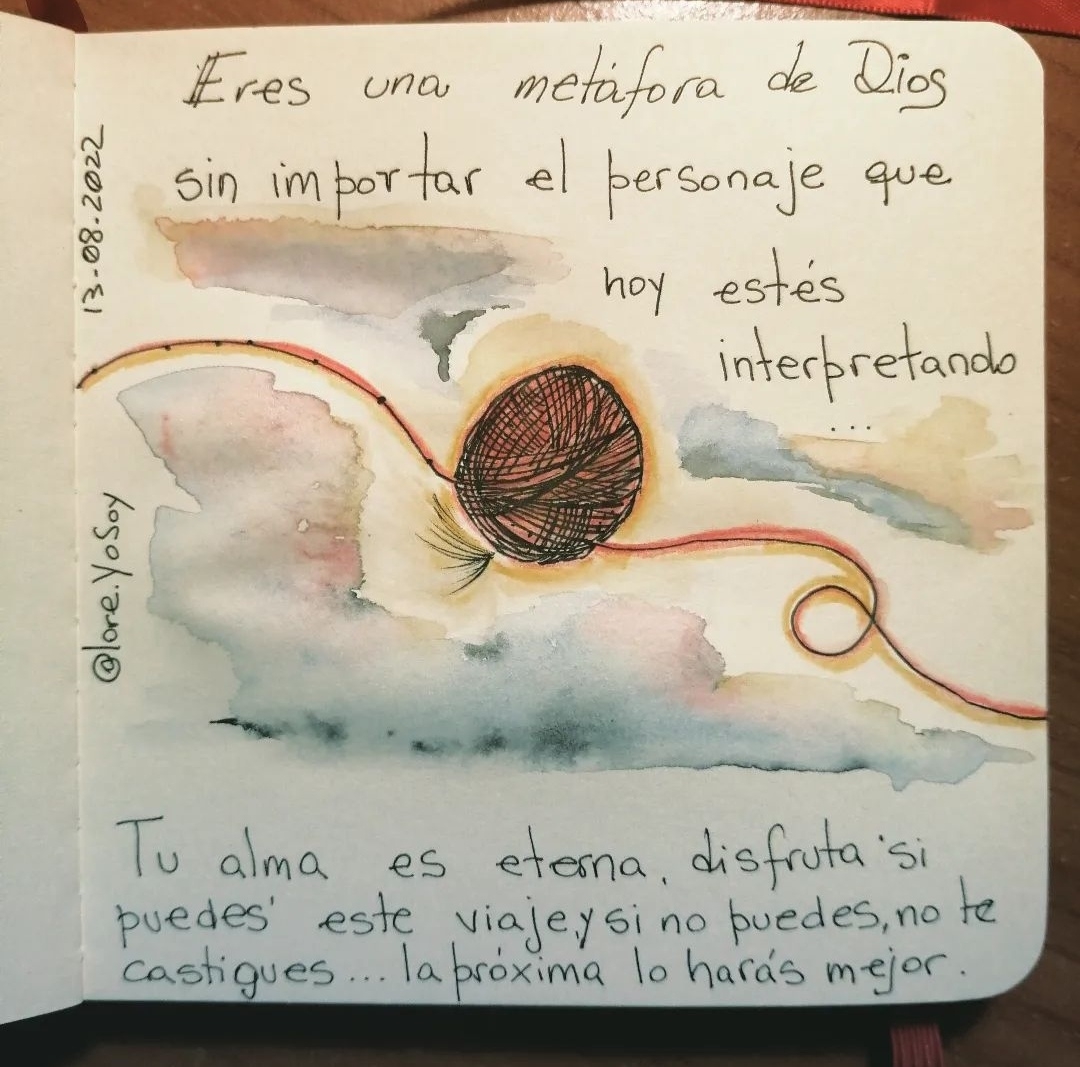 Eres una metáfora de Dios
sin importar el personaje que
hoy estés
interpretando
...
13-08-2022
@lore.YoSoy
Tu alma es eterna, disfruta 'si
puedes' este viaje, y si no puedes, no te
castigues... la próxima lo harás mejor.